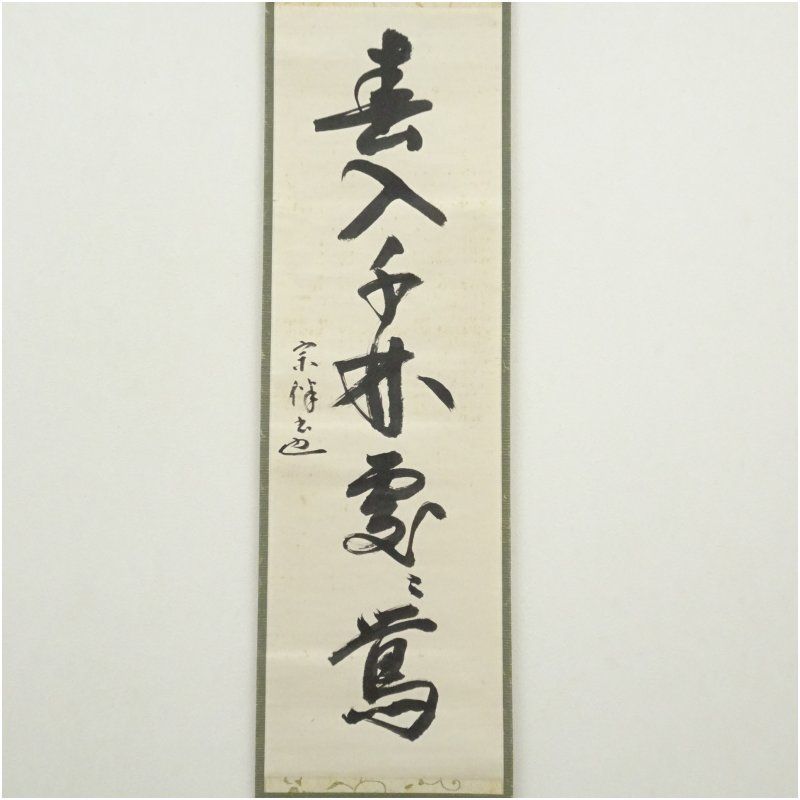 春入千林處々鶯
宗信書